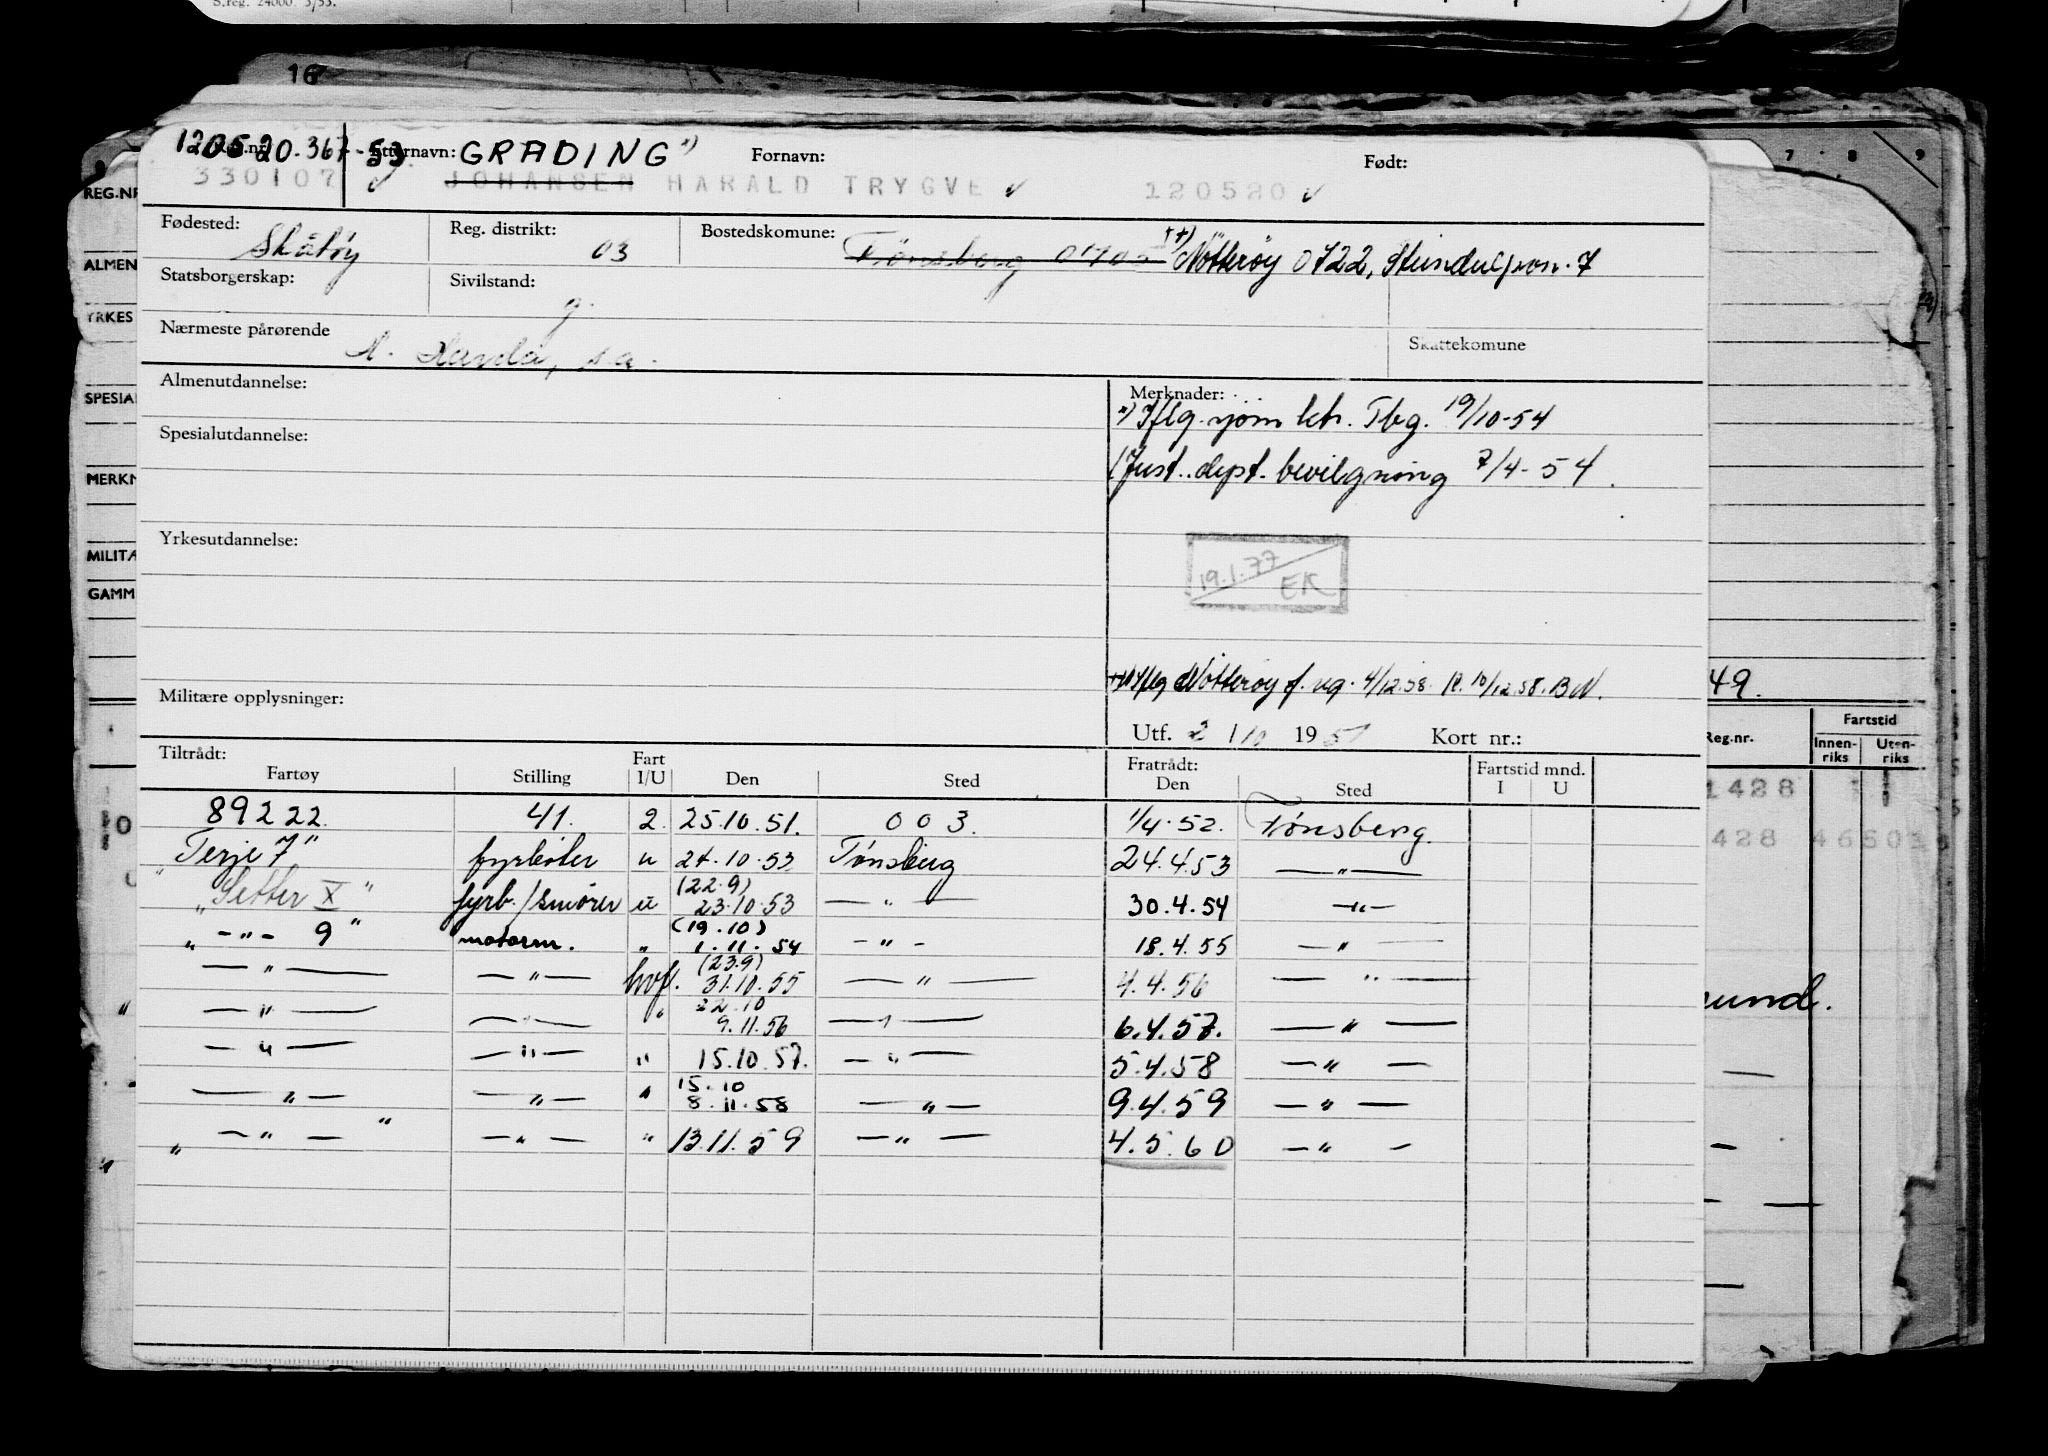 S.reg. 24000. 3/53.
16
120520.367-53 Etternavn: GRADING Fornavn: Født:
330107 JOHANSEN HARALD TRYGVE 120520
Fødested: Skåtøy Reg. distrikt: 03 Bostedskomune: Tønsberg 0705 ++) Nøtterøy 0722,
Statsborgerskap: Sivilstand: g.
Nærmeste pårørende Skattekomune
Almenutdannelse: Merknader:
Iflg. mønstr. ktr. Tbg. 19/10-54
Spesialutdannelse: (Just. dept. bevilgning 7/4-54.
Yrkesutdannelse:
19.1.77
EK
++) Iflg Nøtterøy f. reg. 4/12.58. 10/12.58. BN.
Militære opplysninger:
Utf. 2/10 1951 Kort nr.:
Tiltrådt: Fart Fratrådt: Fartstid mnd.
Fartøy Stilling I/U Den Sted Den Sted I U
89222 41. 2. 25.10.51. 003. 1/4.52. Tønsberg.
"Terje 7" fyrbøter u 24.10.53 Tønsberg 24.4.53 — " —
"Setter X" fyrb./smører u (22.9) 23.10.53 — " — 30.4.54 — " —
" - " - 9" motorm. " (19.10) 1.11.54 — " — 18.4.55 — " —
— " — — " — hvf. (23.9) 31.10.55 — " — 4.4.56 — " —
— " — — " — " 22.10 9.11.56 — " — 6.4.57. — " —
— " — — " — " 15.10.57. — " — 5.4.58 — " —
— " — — " — " 15.10 8.11.58 — " — 9.4.59 — " —
" — " — " — " — " 13.11.59 — " — 4.5.60 — " —
REG.NR
ALMEN
YRKES
SPESIAL
MERKN
MILITÆ
GAMM
7 8 9
49.
Reg.nr. Fartstid
Innen-riks Uten-riks
1428
428 46503